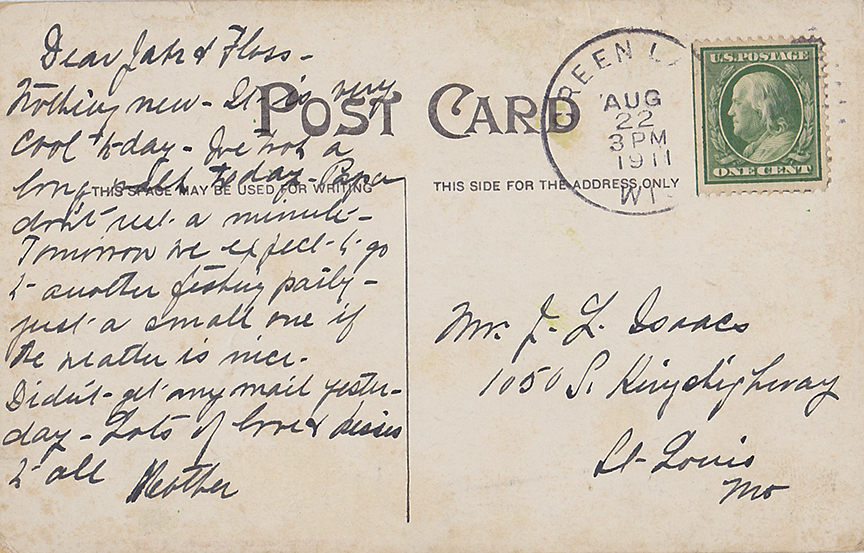 Dear Jake & Floss -
Nothing new - It is very
cool to-day - We had a
long to-day - Papa
don't rest a minute -
Tomorrow we expect to go
to another fishing party -
just a small one if
the weather is nice.
Didn't get any mail yester-
day - Lots of love & kisses
to all Mother
POST CARD
THIS SPACE MAY BE USED FOR WRITING
THIS SIDE FOR THE ADDRESS ONLY
GREEN L
AUG
22
3 PM
1911
WIS
U.S. POSTAGE
ONE CENT
Mr. J. L. Isaacs
1050 S. Kingshighway
St. Louis
Mo